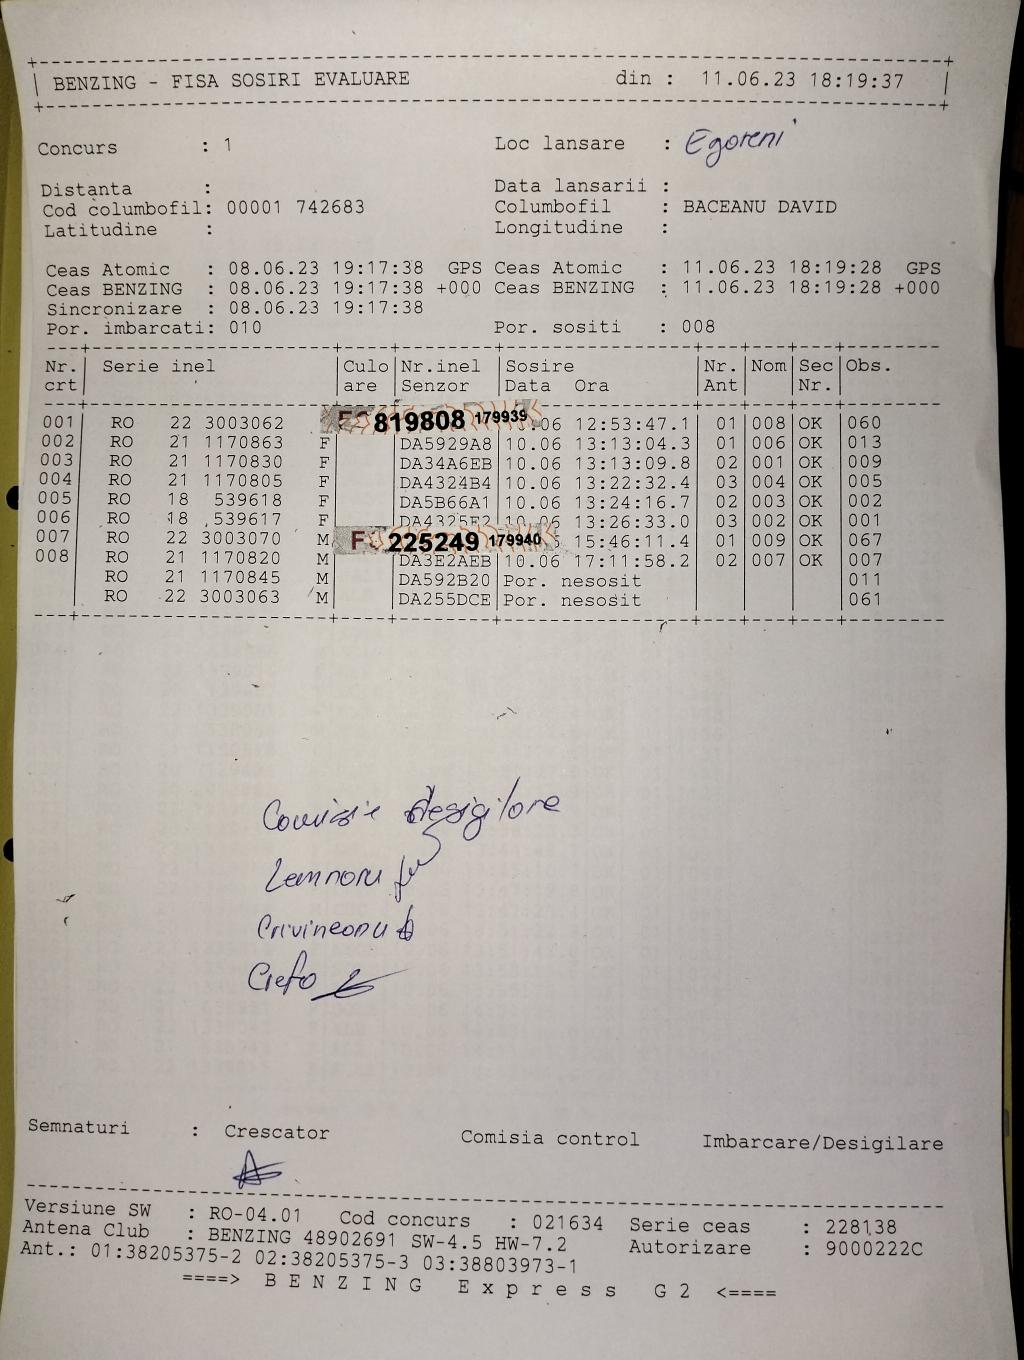 BENZING - FISA SOSIRI EVALUARE din : 11.06.23 18:19:37
Concurs : 1 Loc lansare : Egoreni
Distanta : Data lansarii :
Cod columbofil: 00001 742683 Columbofil : BACEANU DAVID
Latitudine : Longitudine :
Ceas Atomic : 08.06.23 19:17:38 GPS Ceas Atomic : 11.06.23 18:19:28 GPS
Ceas BENZING : 08.06.23 19:17:38 +000 Ceas BENZING : 11.06.23 18:19:28 +000
Sincronizare : 08.06.23 19:17:38
Por. imbarcati: 010 Por. sositi : 008
Nr. Serie inel Culo Nr.inel Sosire Nr. Nom Sec Obs.
crt are Senzor Data Ora Ant Nr.
001 RO 22 3003062 819808 179939 .06 12:53:47.1 01 008 OK 060
002 RO 21 1170863 F DA5929A8 10.06 13:13:04.3 01 006 OK 013
003 RO 21 1170830 F DA34A6EB 10.06 13:13:09.8 02 001 OK 009
004 RO 21 1170805 F DA4324B4 10.06 13:22:32.4 03 004 OK 005
005 RO 18 539618 F DA5B66A1 10.06 13:24:16.7 02 003 OK 002
006 RO 18 539617 F DA4325F2 10.06 13:26:33.0 03 002 OK 001
007 RO 22 3003070 M F 225249 179940 15:46:11.4 01 009 OK 067
008 RO 21 1170820 M DA3E2AEB 10.06 17:11:58.2 02 007 OK 007
RO 21 1170845 M DA592B20 Por. nesosit 011
RO 22 3003063 M DA255DCE Por. nesosit 061
Comisie desigilare
Lemnaru
Crivineanu
Crefo
Semnaturi : Crescator Comisia control Imbarcare/Desigilare
Versiune SW : RO-04.01 Cod concurs : 021634 Serie ceas : 228138
Antena Club : BENZING 48902691 SW-4.5 HW-7.2 Autorizare : 9000222C
Ant.: 01:38205375-2 02:38205375-3 03:38803973-1
====> B E N Z I N G E x p r e s s G 2 <====